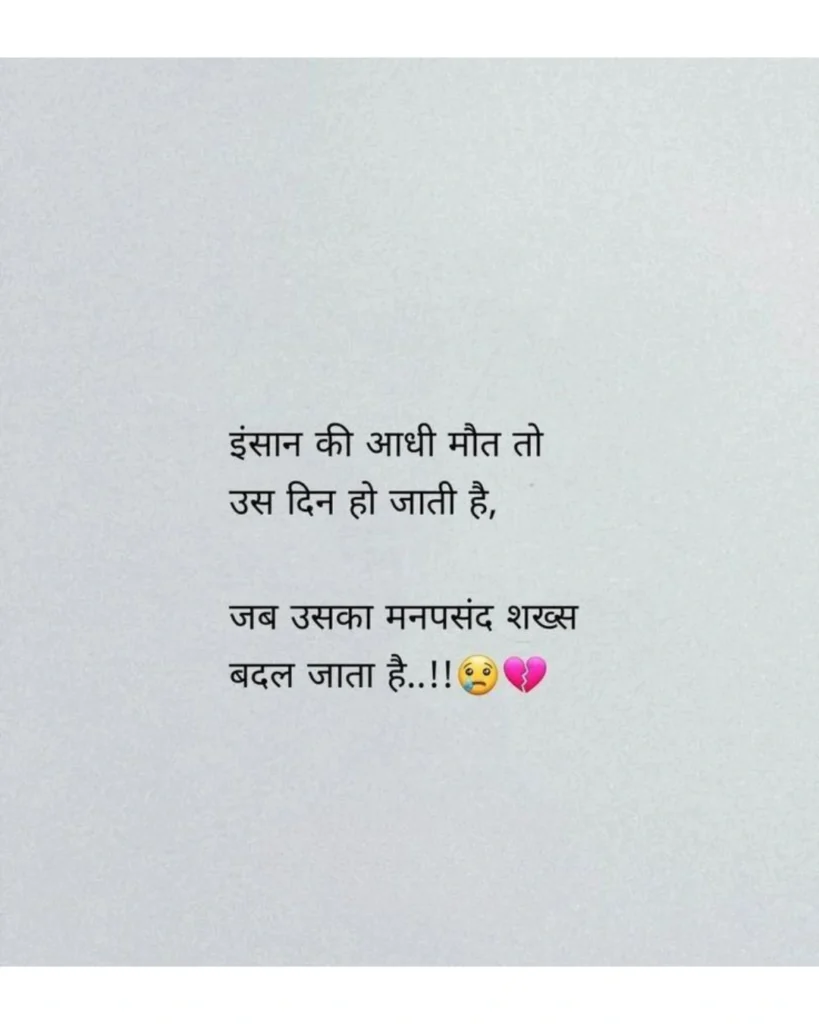 इंसान की आधी मौत तो
उस दिन हो जाती है,
जब उसका मनपसंद शख्स
बदल जाता है..!!😢💔